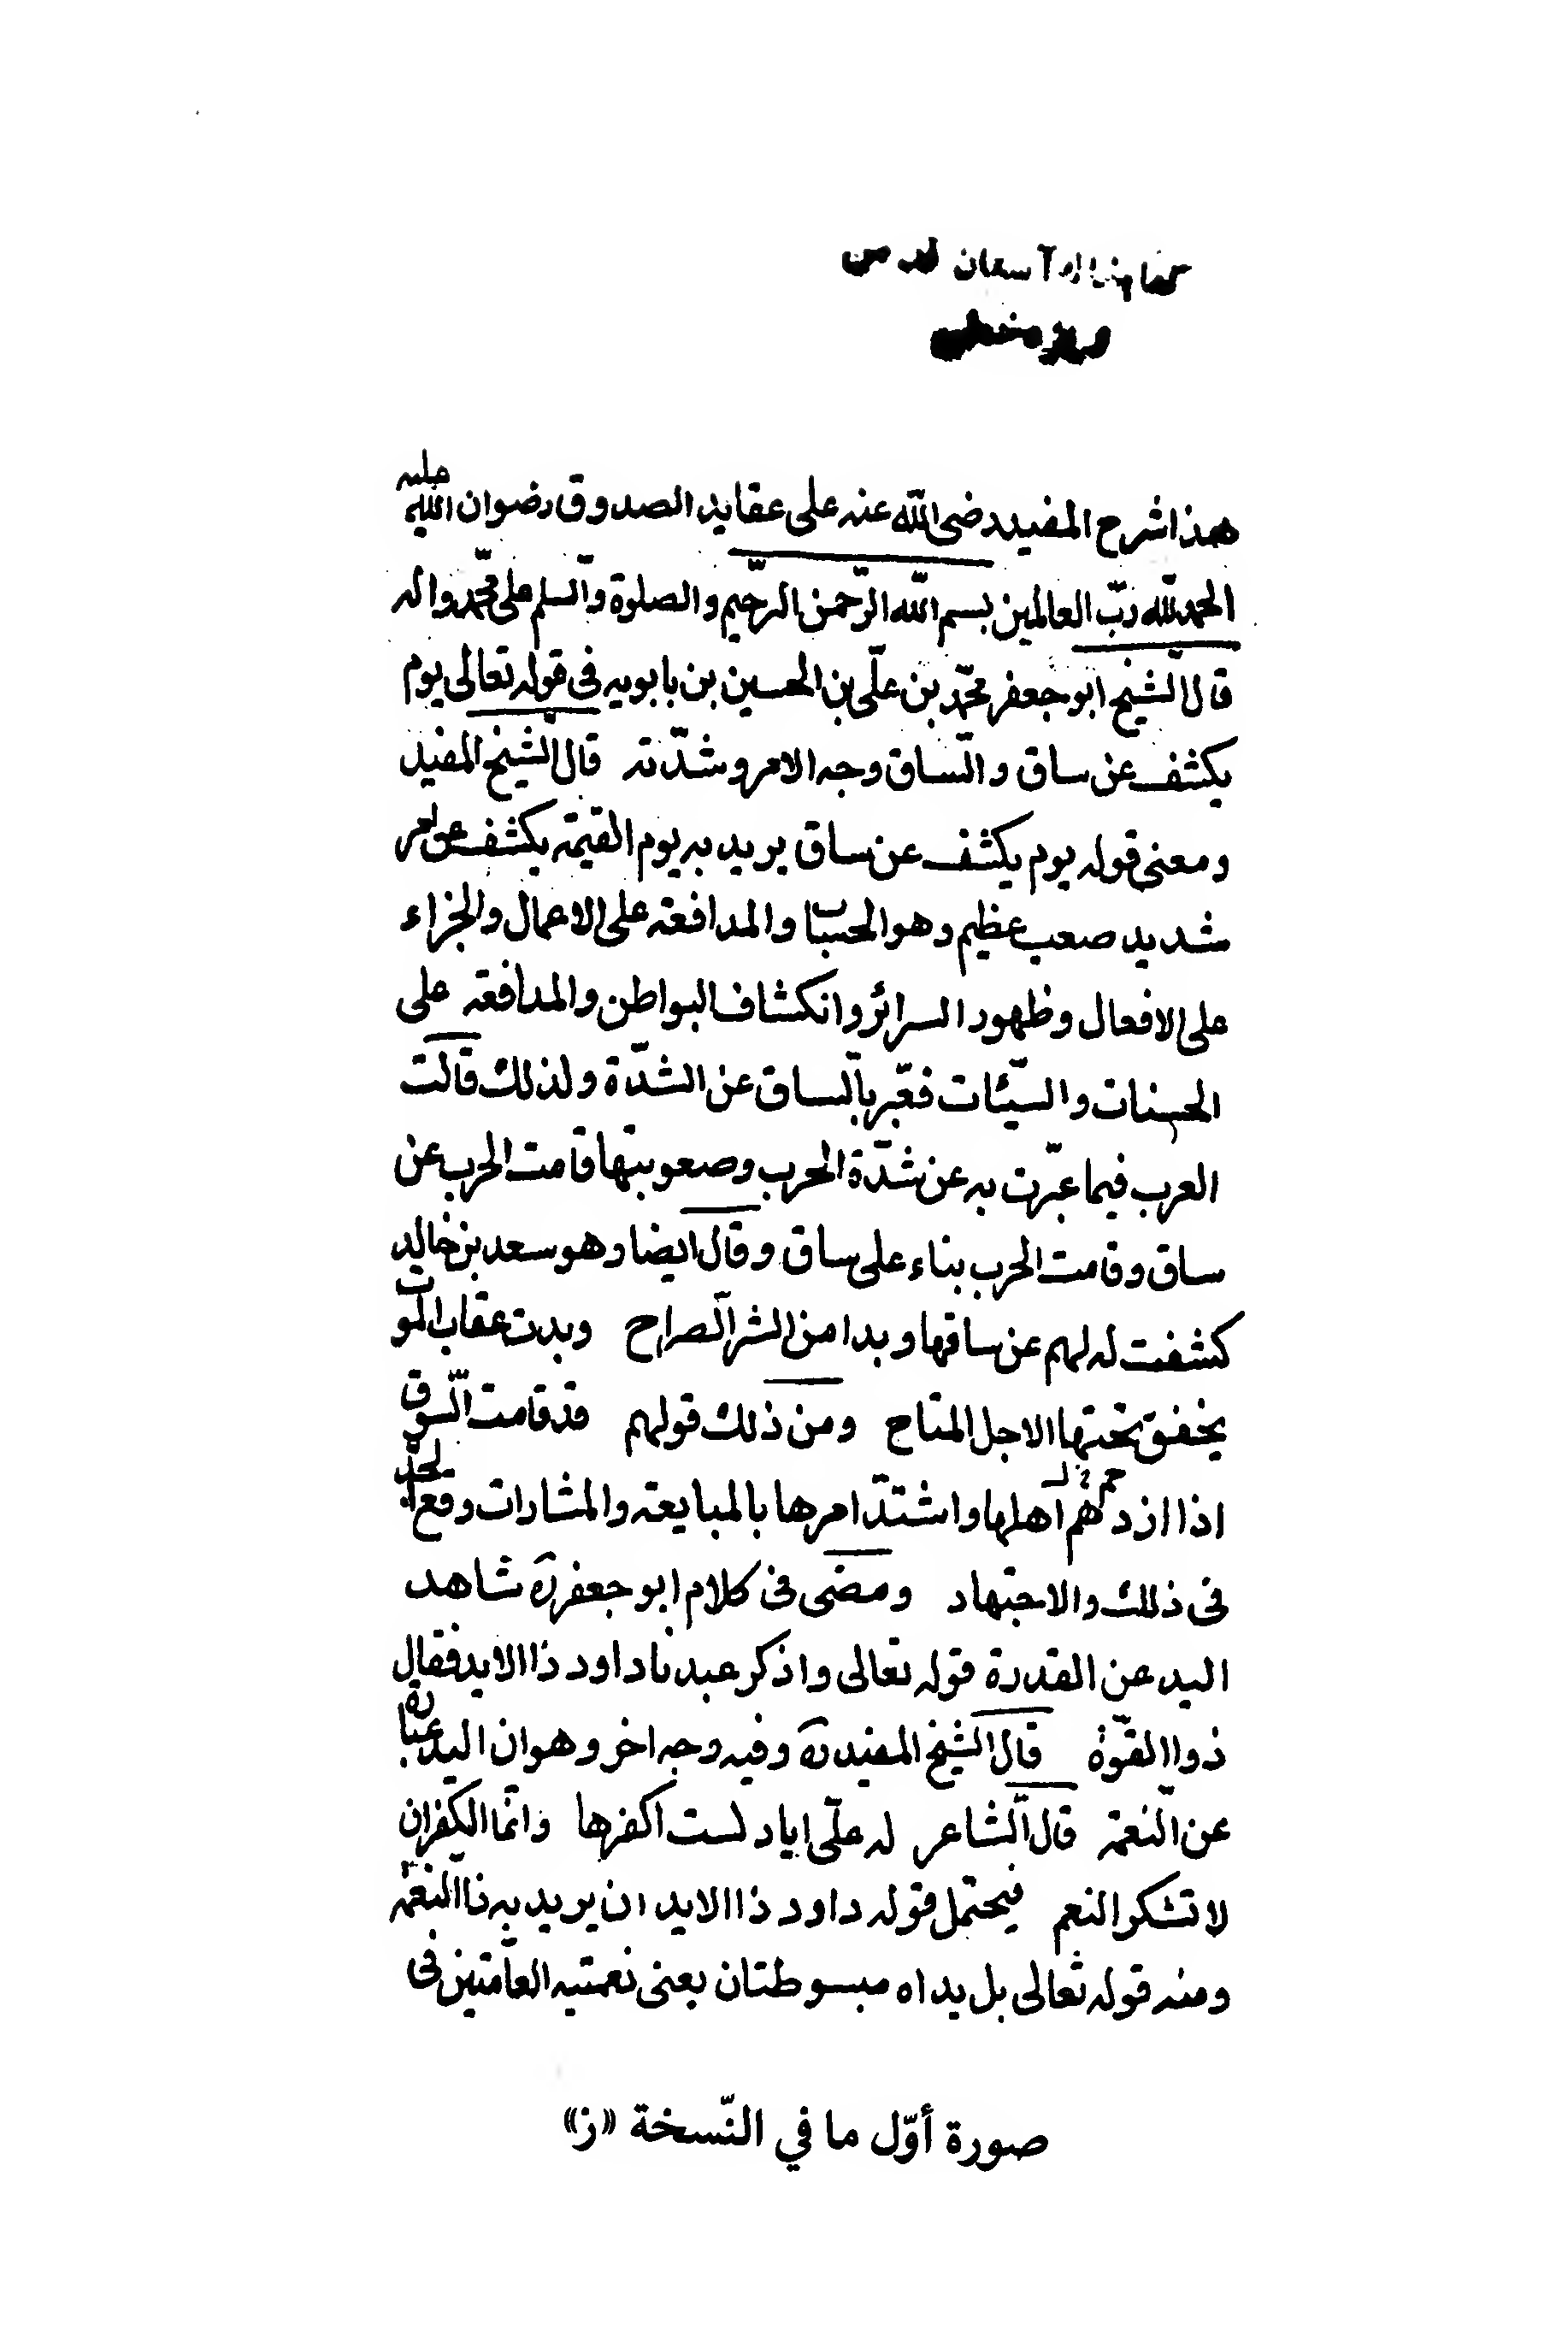 هذا شرح المفيد رضى الله عنه على عقايد الصدوق رضوان الله عليه
الحمد لله ربّ العالمين بسم الله الرّحمن الرّحيم والصلوة والسّلم على محمّد واله
قال الشّيخ ابو جعفر محمّد بن علّى بن الحسين بن بابويه فى قوله تعالى يوم
يكشف عن ساق والسّاق وجه الامر وشدّته قال الشّيخ المفيد
ومعنى قوله يوم يكشف عن ساق يريد به يوم القيمة يكشف عن امر
شديد صعب عظيم وهو الحساب والمدافعة على الاعمال والجزاء
على الافعال وظهور السرائر وانكشاف البواطن والمدافعة على
الحسنات والسّيّئات فعبّر بالسّاق عن الشدّة ولذلك قالت
العرب فيما عبّرت به عن شدّة الحرب وصعوبتها قامت الحرب عن
ساق وقامت الحرب بناء على ساق وقال ايضا وهو سعد بن خالد
كشفت له لهم عن ساقها وبدا من الشر الصّراح وبدت عقاب الموت
يخفق تحتها الاجل المتاح ومن ذلك قولهم قد قامت السّوق
اذا ازدهم اهلها واشتدّ امرها بالمبايعة والمشارات وقع الجد
فى ذلك والاجتهاد ومضى فى كلام ابو جعفر ره شاهد
اليد عن القدرة قوله تعالى واذكر عبدنا داود ذا الايد فقال
ذوا القوّة قال الشّيخ المفيد ره وفيه وجه اخر وهو ان اليد عبارة
عن النّعمة قال الشّاعر له علّى اياد لست اكفرها وانّما الكفران
لا تشكر النعم فيحتمل قوله داود ذا الايد ان يريد به ذا النّعمة
ومنه قوله تعالى بل يداه مبسوطتان يعنى نعمتيه العامّتين فى
صورة أوّل ما في النّسخة «ز»